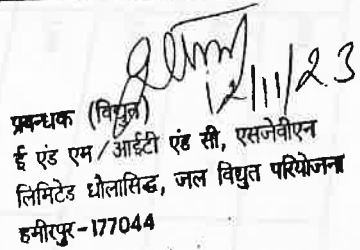 12/11/23
प्रबन्धक (विद्युत)
ई एंड एम/आईटी एंड सी, एसजेवीएन
लिमिटेड धौलासिद्ध, जल विद्युत परियोजना
हमीरपुर-177044